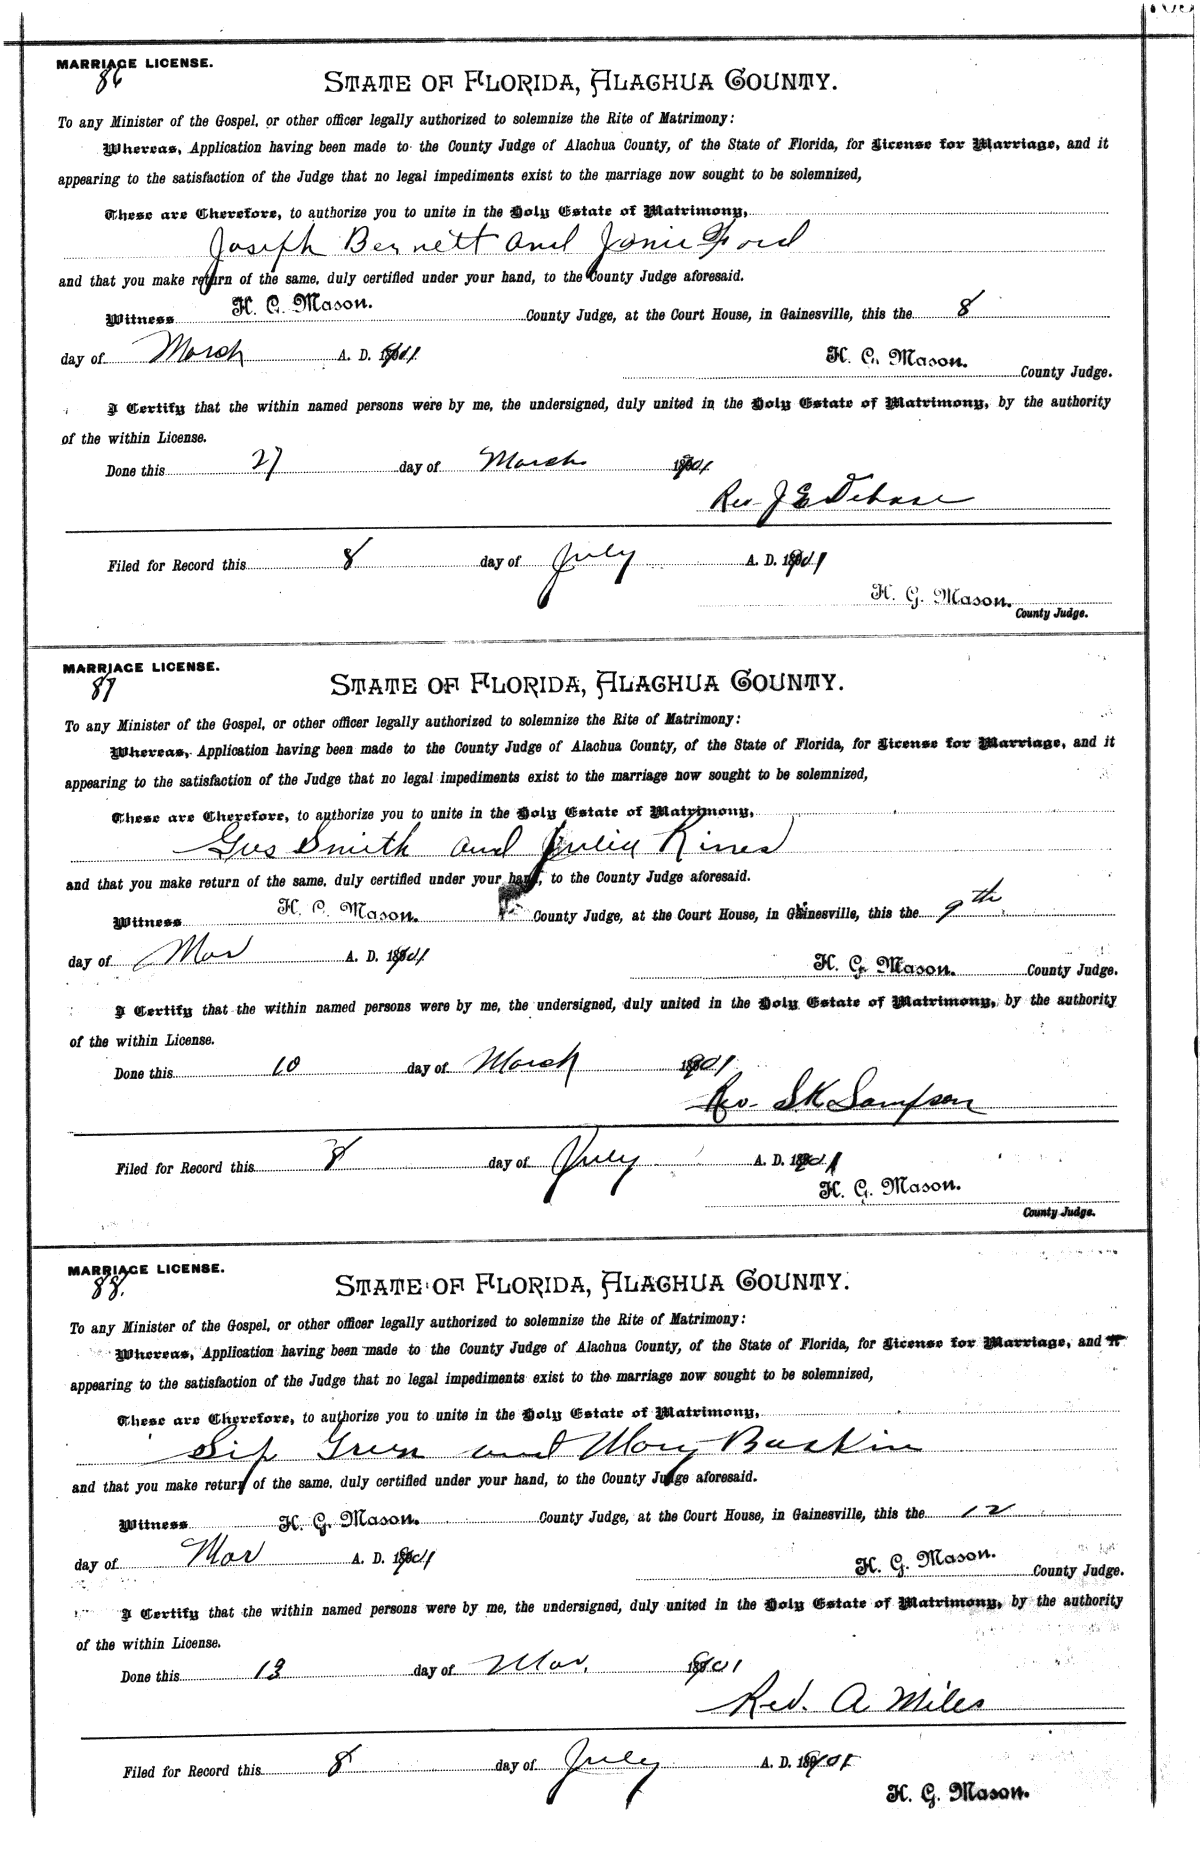 MARRIAGE LICENSE.
86
STATE OF FLORIDA, ALACHUA COUNTY.
To any Minister of the Gospel, or other officer legally authorized to solemnize the Rite of Matrimony:
Whereas, Application having been made to the County Judge of Alachua County, of the State of Florida, for License for Marriage, and it
appearing to the satisfaction of the Judge that no legal impediments exist to the marriage now sought to be solemnized,
These are Therefore, to authorize you to unite in the Holy Estate of Matrimony,
Joseph Bennett and Janie Ford
and that you make return of the same, duly certified under your hand, to the County Judge aforesaid.
Witness H. G. Mason. County Judge, at the Court House, in Gainesville, this the 8
day of March A. D. 1901 H. G. Mason. County Judge.
I Certify that the within named persons were by me, the undersigned, duly united in the Holy Estate of Matrimony, by the authority
of the within License.
Done this 27 day of March 1901
Rev J E Debose
Filed for Record this 8 day of July A. D. 1901
H. G. Mason.
County Judge.
MARRIAGE LICENSE.
87
STATE OF FLORIDA, ALACHUA COUNTY.
To any Minister of the Gospel, or other officer legally authorized to solemnize the Rite of Matrimony:
Whereas, Application having been made to the County Judge of Alachua County, of the State of Florida, for License for Marriage, and it
appearing to the satisfaction of the Judge that no legal impediments exist to the marriage now sought to be solemnized,
These are Therefore, to authorize you to unite in the Holy Estate of Matrimony,
Gus Smith and Julia Rines
and that you make return of the same, duly certified under your hand, to the County Judge aforesaid.
Witness H. G. Mason. County Judge, at the Court House, in Gainesville, this the 9th
day of Mar A. D. 1901 H. G. Mason. County Judge.
I Certify that the within named persons were by me, the undersigned, duly united in the Holy Estate of Matrimony, by the authority
of the within License.
Done this 10 day of March 1901
Rev. S K Sampson
Filed for Record this 8 day of July A. D. 1901
H. G. Mason.
County Judge.
MARRIAGE LICENSE.
88.
STATE OF FLORIDA, ALACHUA COUNTY.
To any Minister of the Gospel, or other officer legally authorized to solemnize the Rite of Matrimony:
Whereas, Application having been made to the County Judge of Alachua County, of the State of Florida, for License for Marriage, and it
appearing to the satisfaction of the Judge that no legal impediments exist to the marriage now sought to be solemnized,
These are Therefore, to authorize you to unite in the Holy Estate of Matrimony,
Sip Green and Mary Baskin
and that you make return of the same, duly certified under your hand, to the County Judge aforesaid.
Witness H. G. Mason. County Judge, at the Court House, in Gainesville, this the 12
day of Mar A. D. 1901 H. G. Mason. County Judge.
I Certify that the within named persons were by me, the undersigned, duly united in the Holy Estate of Matrimony, by the authority
of the within License.
Done this 13 day of Mar. 1901
Rev. A Miles
Filed for Record this 8 day of July A. D. 1901
H. G. Mason.